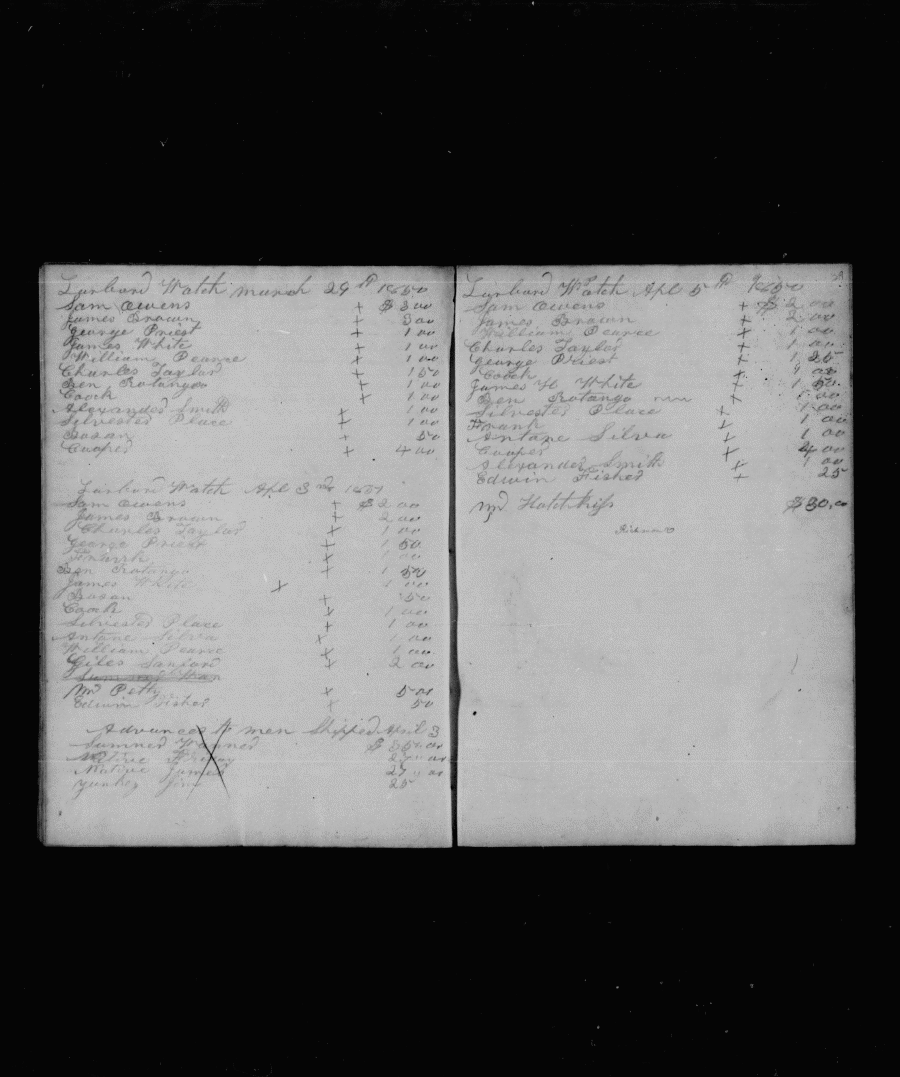 Larbard Watch March 29th 1850
Sam Owens + $3 00
James Brown + 3 00
George Priest + 1 00
James White + 1 00
William Pearce + 1 00
Charles Taylor + 1 50
Ben Rotango + 1 00
Coock + 1 00
Alexander Smith 1 00
Silvester Place + 1 00
Bosan + 50
Cooper + 4 00
Larbord Watch Apl 3
Sam Owens + $2 00
James Brown + 2 00
Charles Taylor + 1 00
George Priest + 1 50
+ 1 00
Ben Rotango + 1 50
James White + 1 00
Bosan + 50
Coock + 1 00
Silvester Place + 1 00
Antone Silva + 1 00
William Pearce + 1 00
Giles Sanford + 2 00
Mr Petty + 5 00
Edwin Fisher + 50
Advances to men Shipped April 3
Sumner
Native
Native James 27 00
Jim 25
Larbard Watch Apl 5th 1850
Sam Owens + $2 00
James Brown + 2 00
William Pearce + 1 00
Charles Taylor + 1 00
George Priest + 1
Coock
James H White + 1 50
Ben Rotango
Silvester Place + 1 00
Frank + 1 00
Antone Silva + 1 00
Cooper + 4 00
Alexander Smith + 1 00
Edwin Fisher + 25
Mr Hotchkiss $30.00